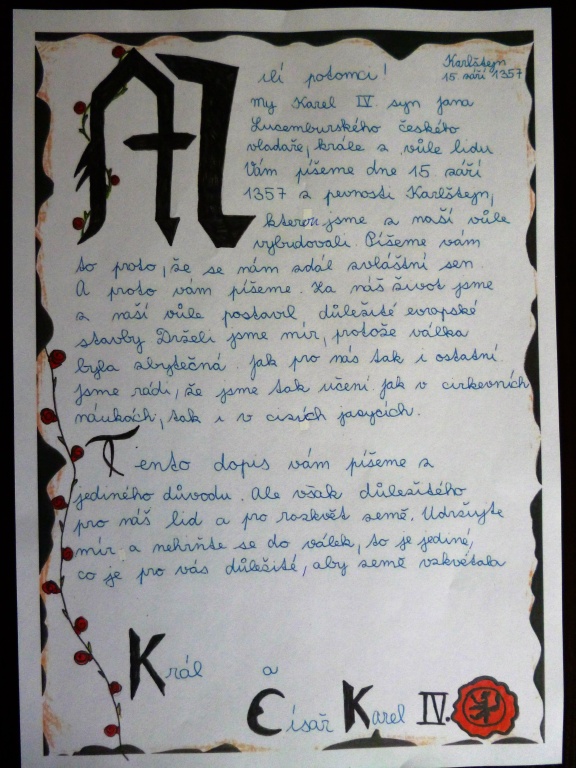 Milí potomci!
Karlštejn
15. září 1357
My Karel IV. syn jana
Lucemburského českého
vladaře, krále z vůle lidu
Vám píšeme dne 15 září
1357 z pevnosti Karlštejn,
kterou jsme z naší vůle
vybudovali. Píšeme vám
to proto, že se nám zdál zvláštní sen.
A proto vám píšeme. Za náš život jsme
z naší vůle postavil důležité evropské
stavby Drželi jsme mír, protože válka
byla zbytečná. jak pro nás tak i ostatní.
jsme rádi, že jsme tak učení. jak v církevních
náukách, tak i v cizích jazycích.
Tento dopis vám píšeme z
jediného důvodu. Ale však důležitého
pro náš lid a pro rozkvět země. Udržujte
mír a nehrňte se do válek, to je jediné,
co je pro vás důležité, aby země vzkvétala
Král a
Císař Karel IV.